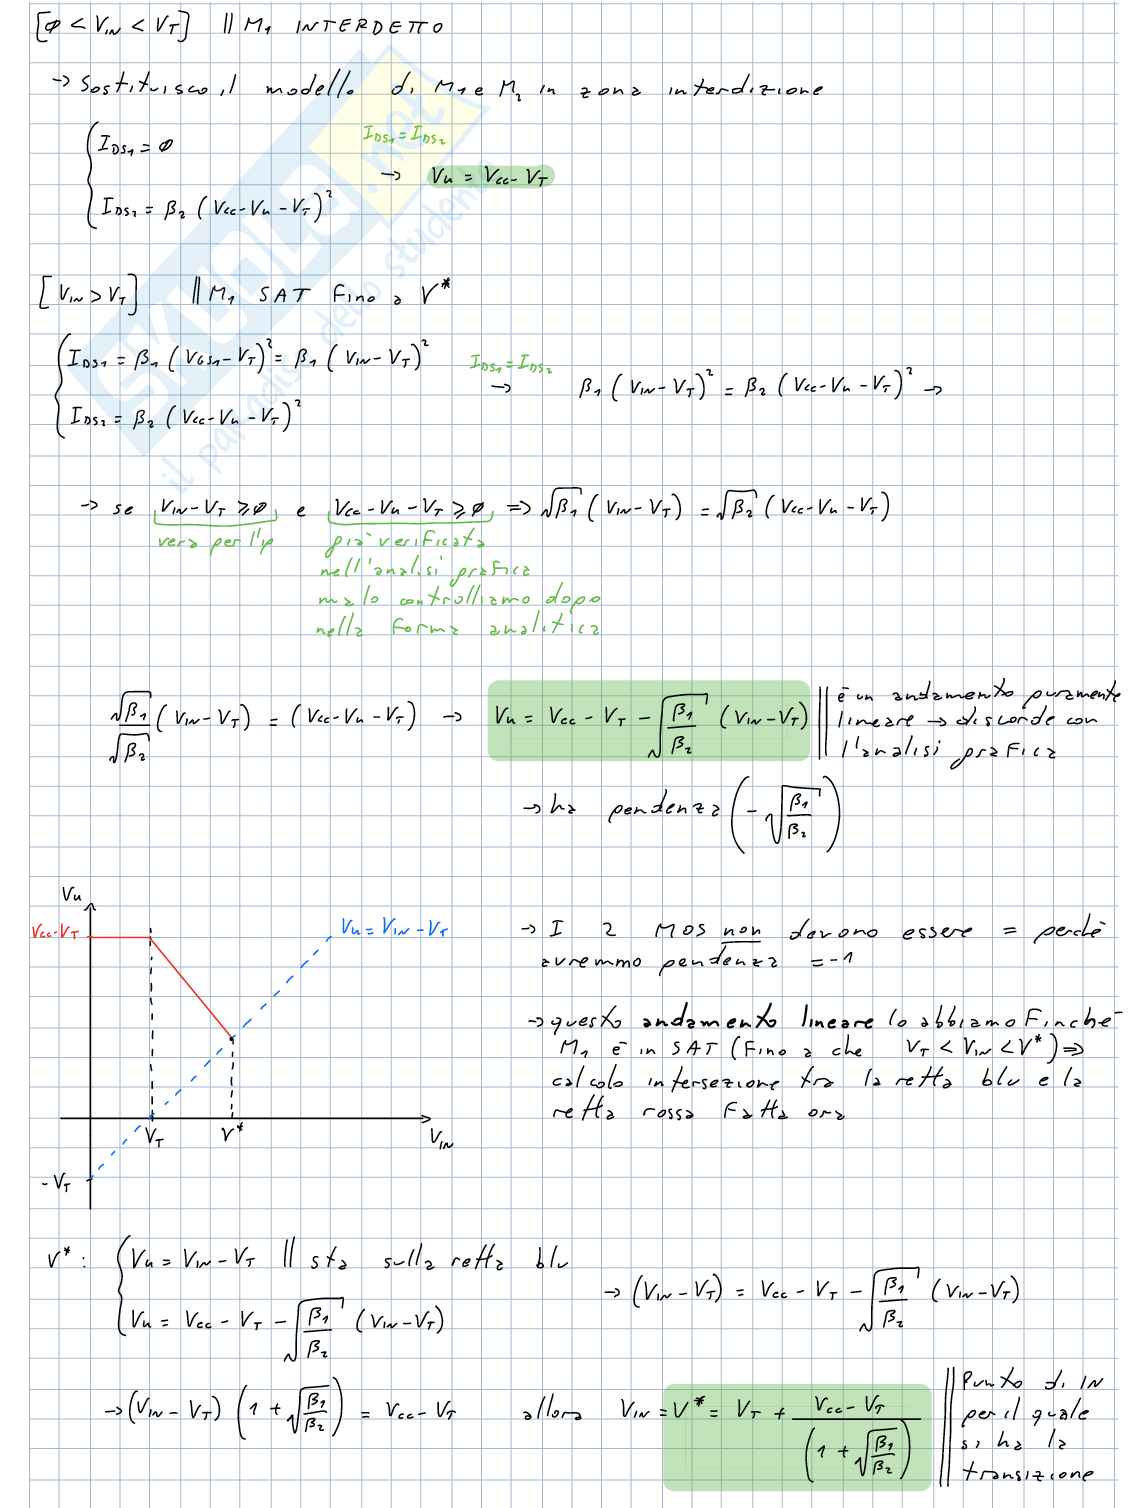 [ø < VIN < VT] || M1 INTERDETTO
→ Sostituisco il modello di M1 e M2 in zona interdizione
IDS1 = ø
IDS1 = IDS2
→ Vu = Vcc - VT
IDS2 = β2 (Vcc - Vu - VT)²
[VIN > VT] || M1 SAT Fino a V*
IDS1 = β1 (VGS1 - VT)² = β1 (VIN - VT)²
IDS1 = IDS2
→ β1 (VIN - VT)² = β2 (Vcc - Vu - VT)² →
IDS2 = β2 (Vcc - Vu - VT)²
→ se VIN - VT ≥ ø e Vcc - Vu - VT ≥ ø => √β1 (VIN - VT) = √β2 (Vcc - Vu - VT)
vera per l'ip già verificata
nell'analisi grafica
ma lo controlliamo dopo
nella forma analitica
√β1/√β2 (VIN - VT) = (Vcc - Vu - VT) → Vu = Vcc - VT - √(β1/β2) (VIN - VT)
è un andamento puramente
lineare → discorde con
l'analisi grafica
→ ha pendenza (-√(β1/β2))
Vu
Vcc-VT
Vu = VIN - VT
VT
V*
VIN
-VT
→ I 2 MOS non devono essere = perchè
avremmo pendenza = -1
→ questo andamento lineare lo abbiamo Finchè
M1 è in SAT (Fino a che VT < VIN < V*) =>
calcolo intersezione tra la retta blu e la
retta rossa Fatta ora
V* : Vu = VIN - VT || sta sulla retta blu
Vu = Vcc - VT - √(β1/β2) (VIN - VT)
→ (VIN - VT) = Vcc - VT - √(β1/β2) (VIN - VT)
→ (VIN - VT) (1 + √(β1/β2)) = Vcc - VT allora VIN = V* = VT + (Vcc - VT)/(1 + √(β1/β2))
Punto di IN
per il quale
si ha la
transizione
SKUOLA.net
il paradiso dello studente